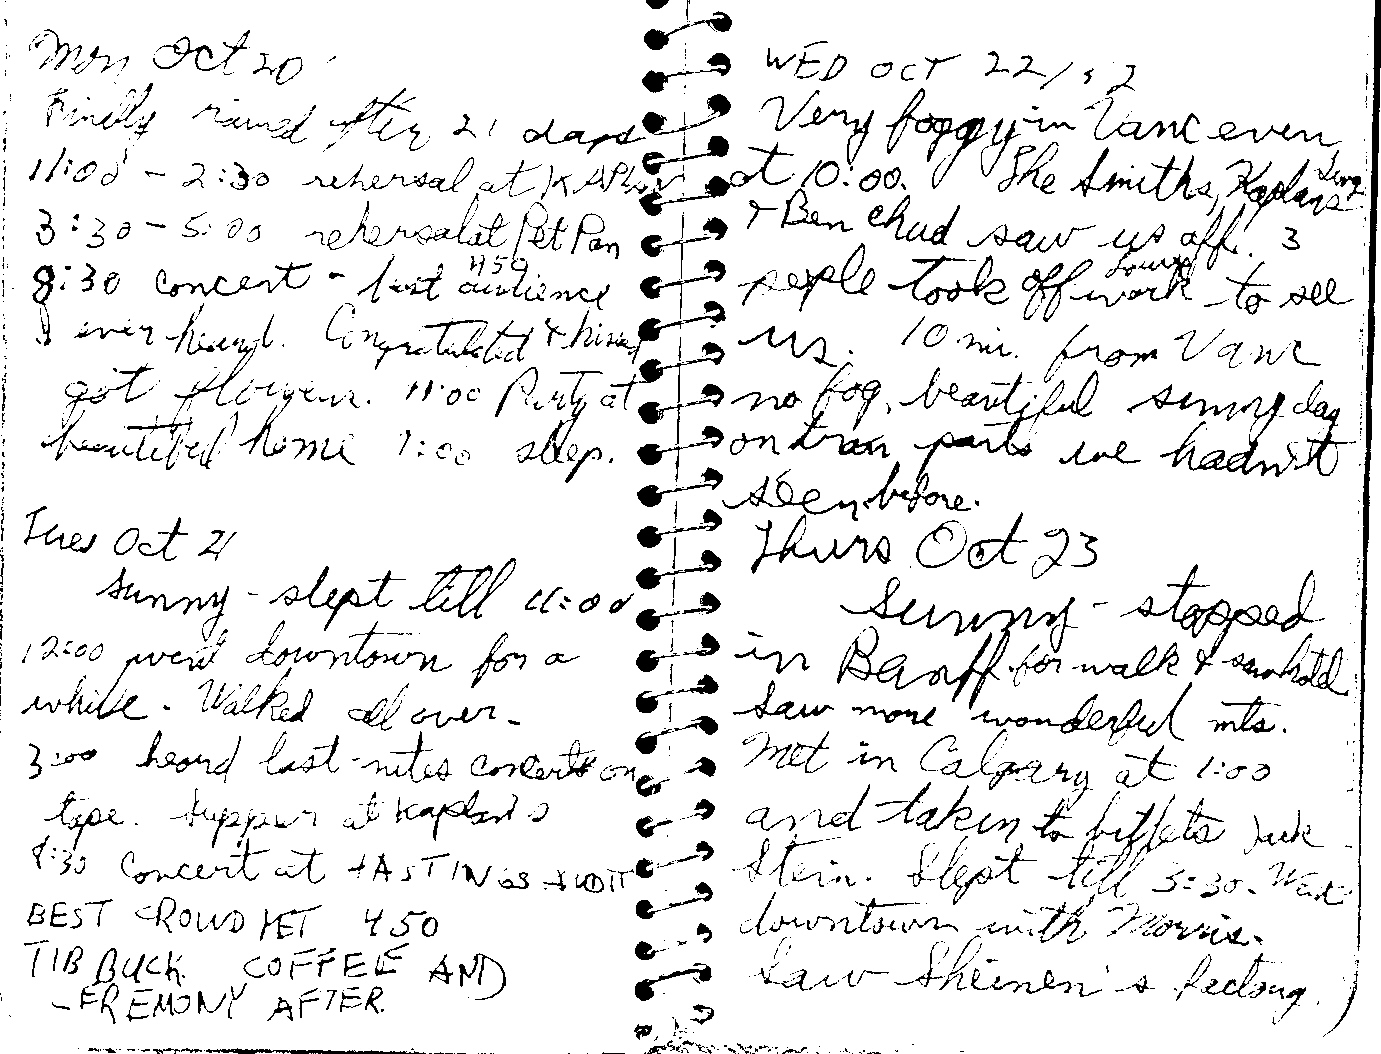 Mon Oct 20
Finally rained after 21 days
11:00 - 2:30 rehersal at Kaplan
3:30 - 5:00 rehersal at Pet Pan
8:30 concert - best audience
450
ever heard. Congratulated & kissed
got flowers. 11:00 Party at
beautiful home 1:00 sleep.
Tues Oct 21
sunny - slept till 11:00
12:00 went downtown for a
while. Walked all over.
3:00 heard last nites concert on
tape. Supper at Kaplan's
8:30 Concert at HASTINGS AUDIT
BEST CROWD YET 450
BUCK COFFEE AND
CEREMONY AFTER
WED OCT 22/52
Very foggy in Vanc even
at 10:00. The Smiths, Kaplans
& Ben Chud saw us off. 3
people took off work to see
us. 10 mi. from Vanc
no fog, beautiful sunny day
on train parts we hadn't
seen before.
Thurs Oct 23
Sunny - stopped
in Banff for walk & saw hotel
saw more wonderful mts.
Met in Calgary at 1:00
and taken to billets Jack
Stein. Slept till 5:30. Went
downtown with Morris.
Saw Sheinen's factory.